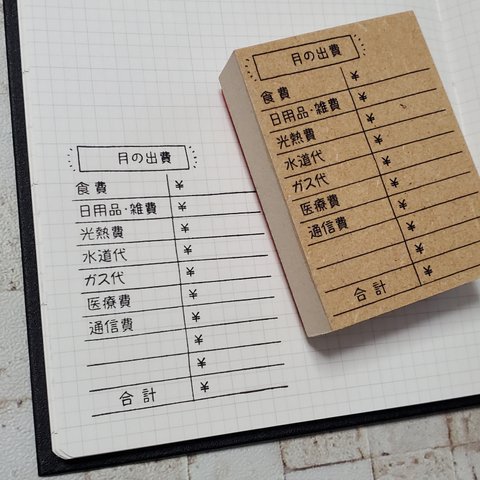 月の出費
食費 ¥
日用品・雑費 ¥
光熱費 ¥
水道代 ¥
ガス代 ¥
医療費 ¥
通信費 ¥
¥
¥
合計 ¥
月の出費
食費 ¥
日用品・雑費 ¥
光熱費 ¥
水道代 ¥
ガス代 ¥
医療費 ¥
通信費 ¥
¥
¥
合計 ¥